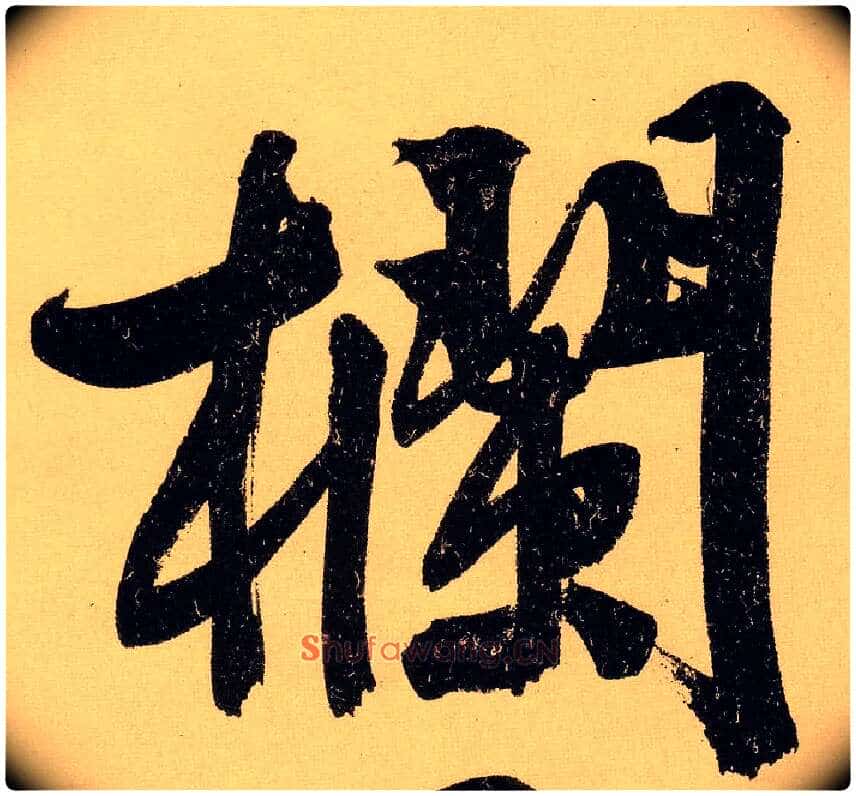 欄
Shufawang.CN